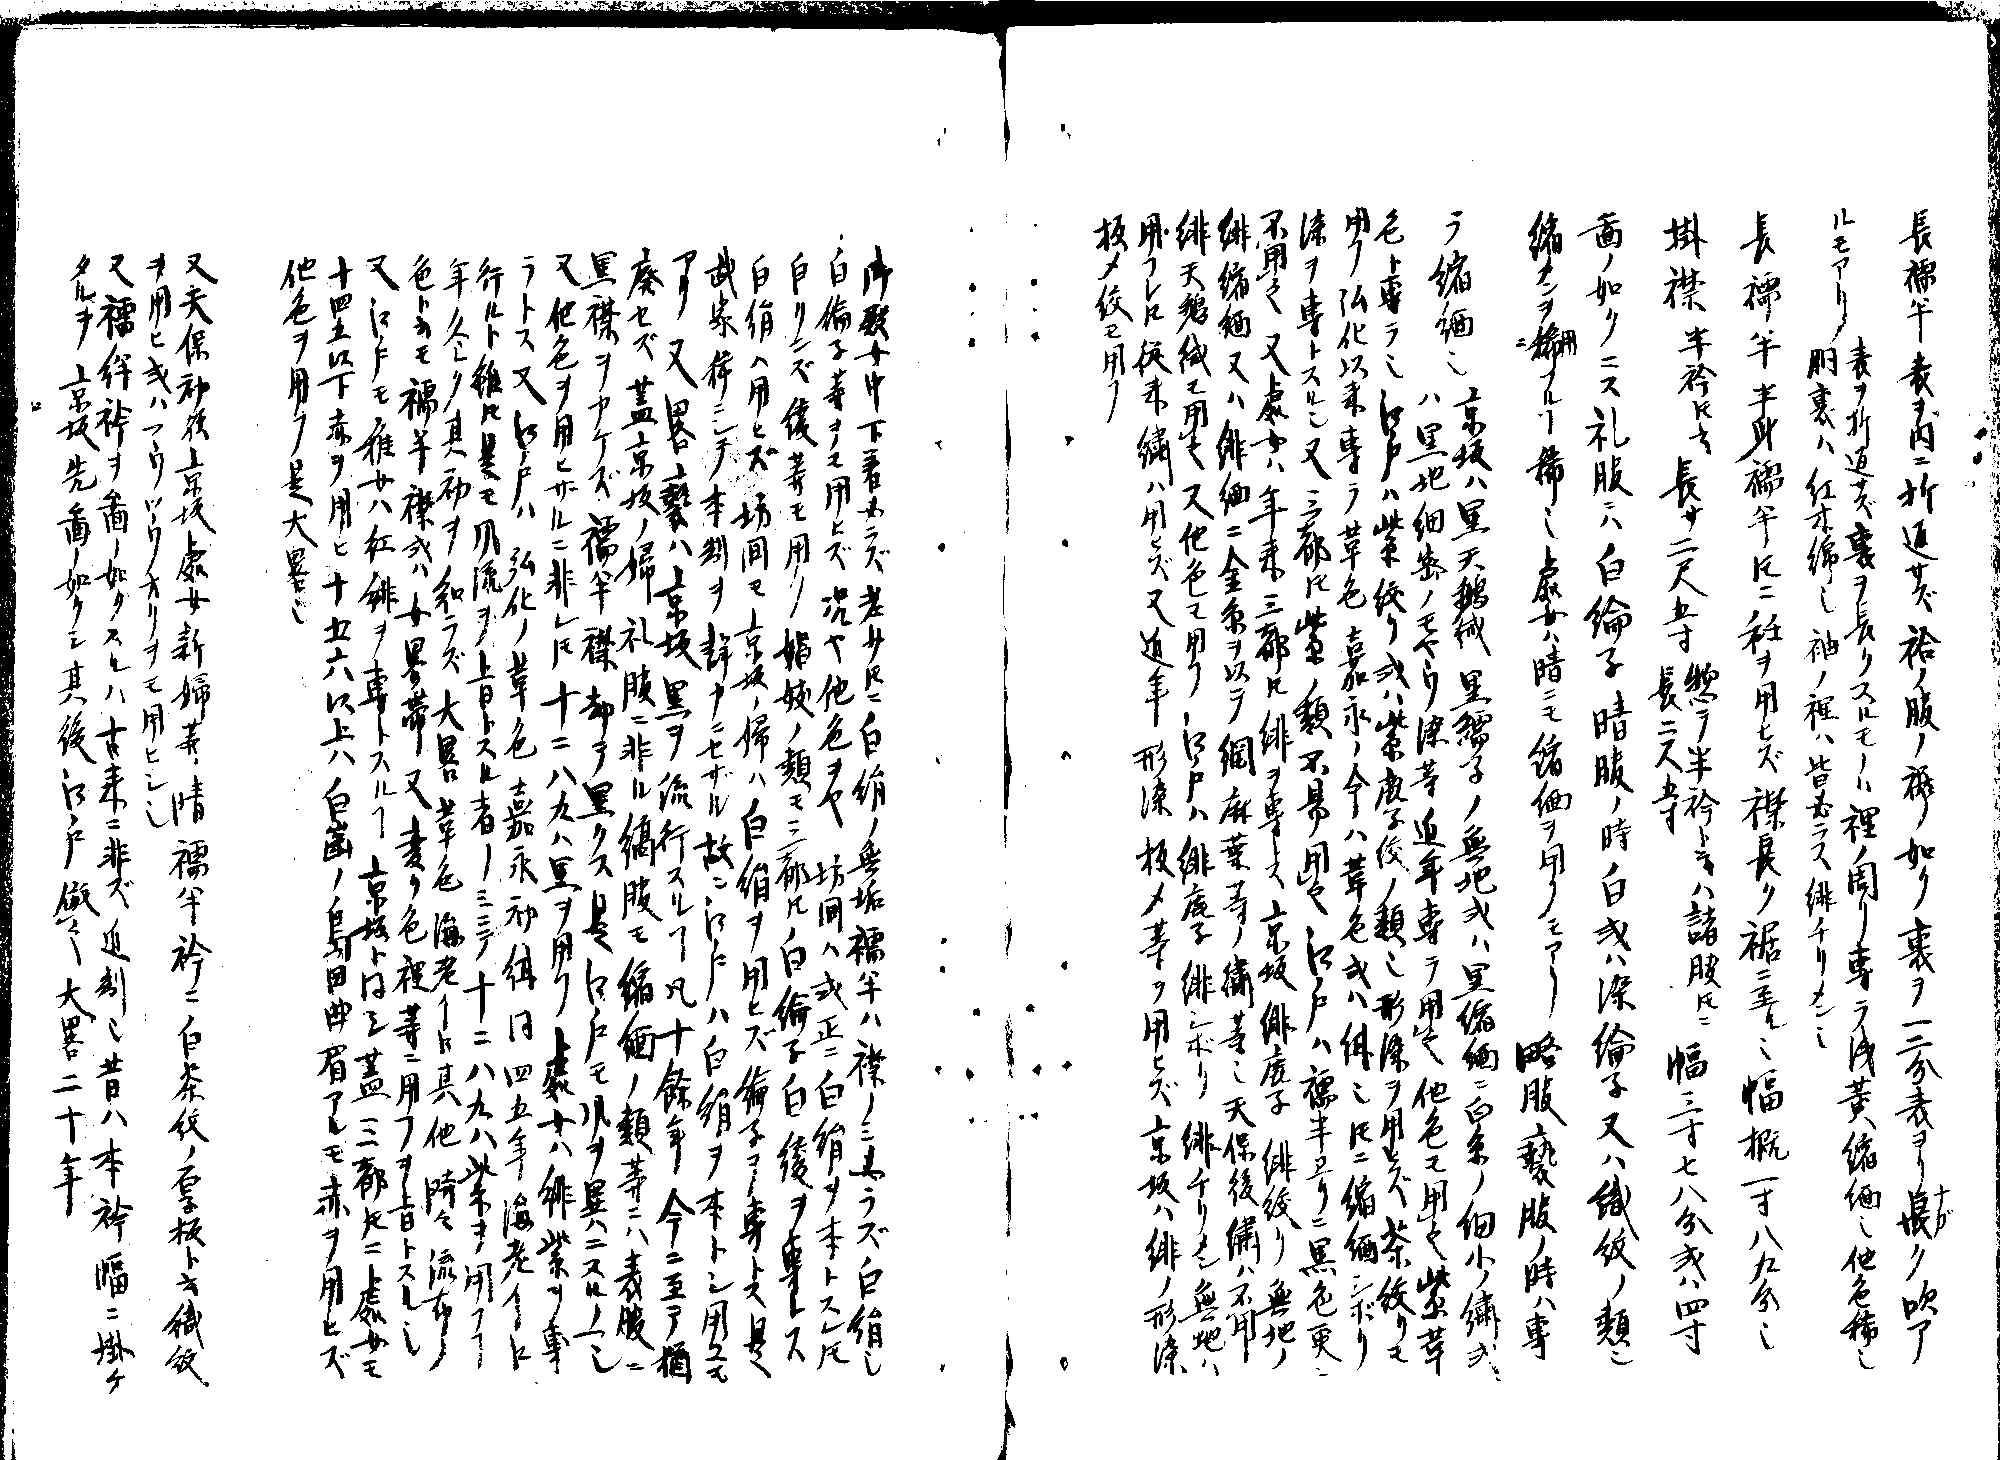 長襦半表ヲ内ニ折返サズ袷ノ服ノ裾ノ如ク裏ヲ一二分表ヨリ長ク吹ア
ルモアリ 表ヲ折返サズ裏ヲ長クスルモノハ裡ノ周リ専ラ浅黄縮緬也他色稀也
胴裏ハ紅木綿也袖ノ裡ハ皆必ラス緋チリメン也
長襦半半身襦半トモニ衽ヲ用ヒズ襟長ク裾ニ至ル也幅概一寸八九分也
掛襟 半衿トモ云長サ二尺五寸 惣ラ半衿ト云ハ諸服トモニ幅三寸七八分或ハ四寸
長二尺五寸
畵ノ如クニス礼服ニハ白綸子晴服ノ時白或ハ染綸子又ハ織紋ノ類也
縮メンヲ用フル稀也処女ハ晴ニモ縮緬ヲ用フモアリ 略服褻服ノ時ハ専
ラ縮緬也 京坂ハ黒天鵞絨黒繻子ノ無地或ハ黒縮緬ニ白糸ノ細小ノ繍或
ハ黒地細密ノモヤウ染等近年専ラ用之他色モ用之紫革
色ト専ラ也江戸ハ紫絞リ或ハ紫鹿子絞ノ類也形染ヲ用ヒズ茶絞リモ
用フ弘化以来専ラ革色嘉永ノ今ハ革色或ハ 也トモニ縮緬シボリ
染ヲ専トスル也又三都トモ紫ノ類不易用之江戸ハ襦半ヱリニ黒色更ニ
不用之又処女ハ年来三都トモ緋ヲ専トス京坂緋鹿子緋絞リ無地ノ
緋縮緬又ハ緋緬ニ金糸ヲ以テ網麻葉等ノ繍等也天保後繍ハ不用
緋天鵞絨モ用之又他色モ用フ江戸ハ緋鹿子緋シボリ緋チリメン無地ハ
用フレトモ従来繍ハ用ヒズ又近年形染板メ等ヲ用ヒズ京坂ハ緋ノ形染
板メ絞モ用フ
御殿女中下着必ラズ老少トモニ白絹ノ無垢襦半ハ襟ノミ必ラズ白絹也
白倫子等ヲモ用ヒズ況ヤ他色ヲヤ坊間ハ或正ニ白絹ヲ本トスレトモ
白リンズ綾等モ用フ娼妓ノ類モ三都トモ白綸子白綾ヲ専トス
白絹ハ用ヒズ坊間モ京坂ノ婦ハ白絹ヲ用ヒズ綸子ヲ専トス是
武家稀ニシテ本制ヲ辨ヘニセザル故也江戸ハ白絹ヲ本トシ用之モ
アリ 又畧褻ハ京坂黒ヲ流行スル凡十餘年今ニ至テ猶
廃セズ蓋京坂ノ婦礼服ニ非ル縞服モ縮緬ノ類等ニハ表服ニ
黒襟ヲカケズ襦半襟却テ黒クス是江戸モ風ヲ異ニスルノ一也
又他色ヲ用ヒザルニ非レトモ十ニ八九ハ黒ヲ用フ処女ハ緋紫ヲ専
ラトス又江戸ハ弘化ノ革色嘉永初 同四五年海老
行ルト雖トモ是モ風流ヲ旨トスル者ノミニテ十ニ八九ハ紫ヲ用フ
年ノ久シク其初ヲ知ラズ大畧革色海老 其他時々流布ノ
色トイヘモ襦半襟或ハ女畧帯又妻ノ色裡等ニ用フヲ旨トスル也
又江戸モ稚女ハ紅緋ヲ専トスル京坂ト同シ蓋三都トモニ処女モ
十四五以下赤ヲ用ヒ十五六以上ハ白歯ノ島田曲眉アルモ赤ヲ用ヒズ
他色ヲ用フ是大畧也
又天保初後京坂処女新婦等晴襦半衿ニノ白茶紋ノ厚板ト云織紋
ヲ用ヒ或ハマウロウリヲモ用ヒシ也
又襦袢衿ヲ畵ノ如クスルハ古来ニ非ズ近制也昔ハ本衿幅ニ掛ケ
タルヲ京坂先畵ノ如クシ其後江戸倣之大畧二十年